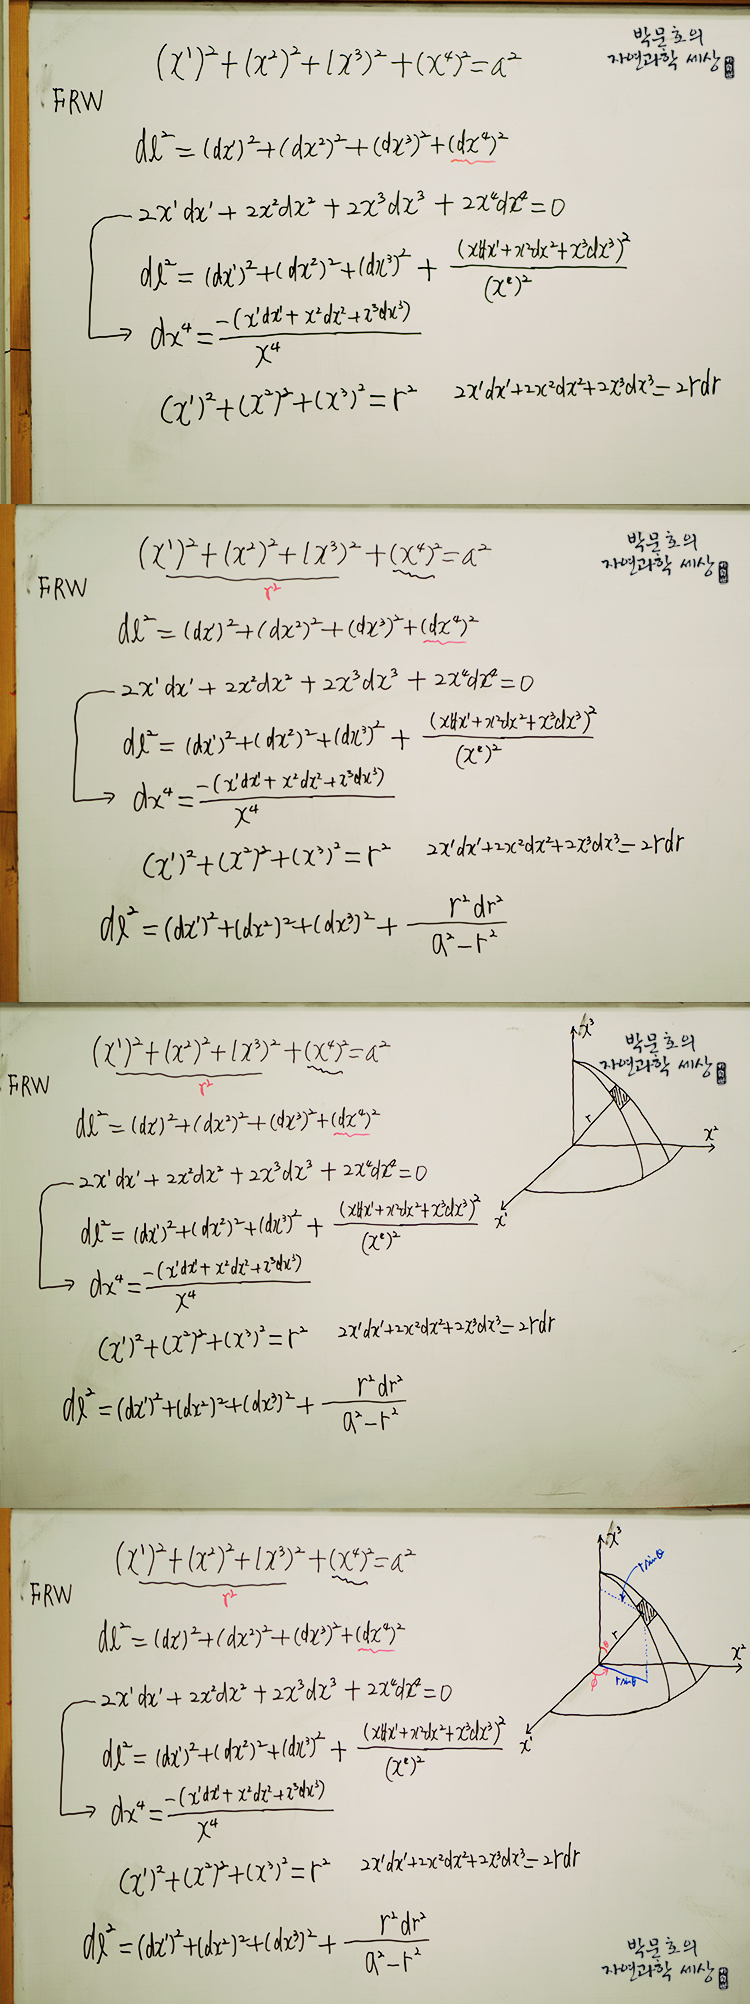 (x¹)² + (x²)² + (x³)² + (x⁴)² = a²
박문호의
자연과학 세상
FRW
dl² = (dx¹)² + (dx²)² + (dx³)² + (dx⁴)²
2x¹dx¹ + 2x²dx² + 2x³dx³ + 2x⁴dx⁴ = 0
dl² = (dx¹)² + (dx²)² + (dx³)² + (x¹dx¹ + x²dx² + x³dx³)² / (x⁴)²
dx⁴ = -(x¹dx¹ + x²dx² + x³dx³) / x⁴
(x¹)² + (x²)² + (x³)² = r² 2x¹dx¹ + 2x²dx² + 2x³dx³ = 2rdr
(x¹)² + (x²)² + (x³)² + (x⁴)² = a²
r²
박문호의
자연과학 세상
FRW
dl² = (dx¹)² + (dx²)² + (dx³)² + (dx⁴)²
2x¹dx¹ + 2x²dx² + 2x³dx³ + 2x⁴dx⁴ = 0
dl² = (dx¹)² + (dx²)² + (dx³)² + (x¹dx¹ + x²dx² + x³dx³)² / (x⁴)²
dx⁴ = -(x¹dx¹ + x²dx² + x³dx³) / x⁴
(x¹)² + (x²)² + (x³)² = r² 2x¹dx¹ + 2x²dx² + 2x³dx³ = 2rdr
dl² = (dx¹)² + (dx²)² + (dx³)² + r²dr² / a² - r²
(x¹)² + (x²)² + (x³)² + (x⁴)² = a²
r²
x³
박문호의
자연과학 세상
r
x²
x¹
FRW
dl² = (dx¹)² + (dx²)² + (dx³)² + (dx⁴)²
2x¹dx¹ + 2x²dx² + 2x³dx³ + 2x⁴dx⁴ = 0
dl² = (dx¹)² + (dx²)² + (dx³)² + (x¹dx¹ + x²dx² + x³dx³)² / (x⁴)²
dx⁴ = -(x¹dx¹ + x²dx² + x³dx³) / x⁴
(x¹)² + (x²)² + (x³)² = r² 2x¹dx¹ + 2x²dx² + 2x³dx³ = 2rdr
dl² = (dx¹)² + (dx²)² + (dx³)² + r²dr² / a² - r²
(x¹)² + (x²)² + (x³)² + (x⁴)² = a²
r²
x³
rsinθ
r
θ
x²
φ
rsinθ
x¹
FRW
dl² = (dx¹)² + (dx²)² + (dx³)² + (dx⁴)²
2x¹dx¹ + 2x²dx² + 2x³dx³ + 2x⁴dx⁴ = 0
dl² = (dx¹)² + (dx²)² + (dx³)² + (x¹dx¹ + x²dx² + x³dx³)² / (x⁴)²
dx⁴ = -(x¹dx¹ + x²dx² + x³dx³) / x⁴
(x¹)² + (x²)² + (x³)² = r² 2x¹dx¹ + 2x²dx² + 2x³dx³ = 2rdr
dl² = (dx¹)² + (dx²)² + (dx³)² + r²dr² / a² - r²
박문호의
자연과학 세상